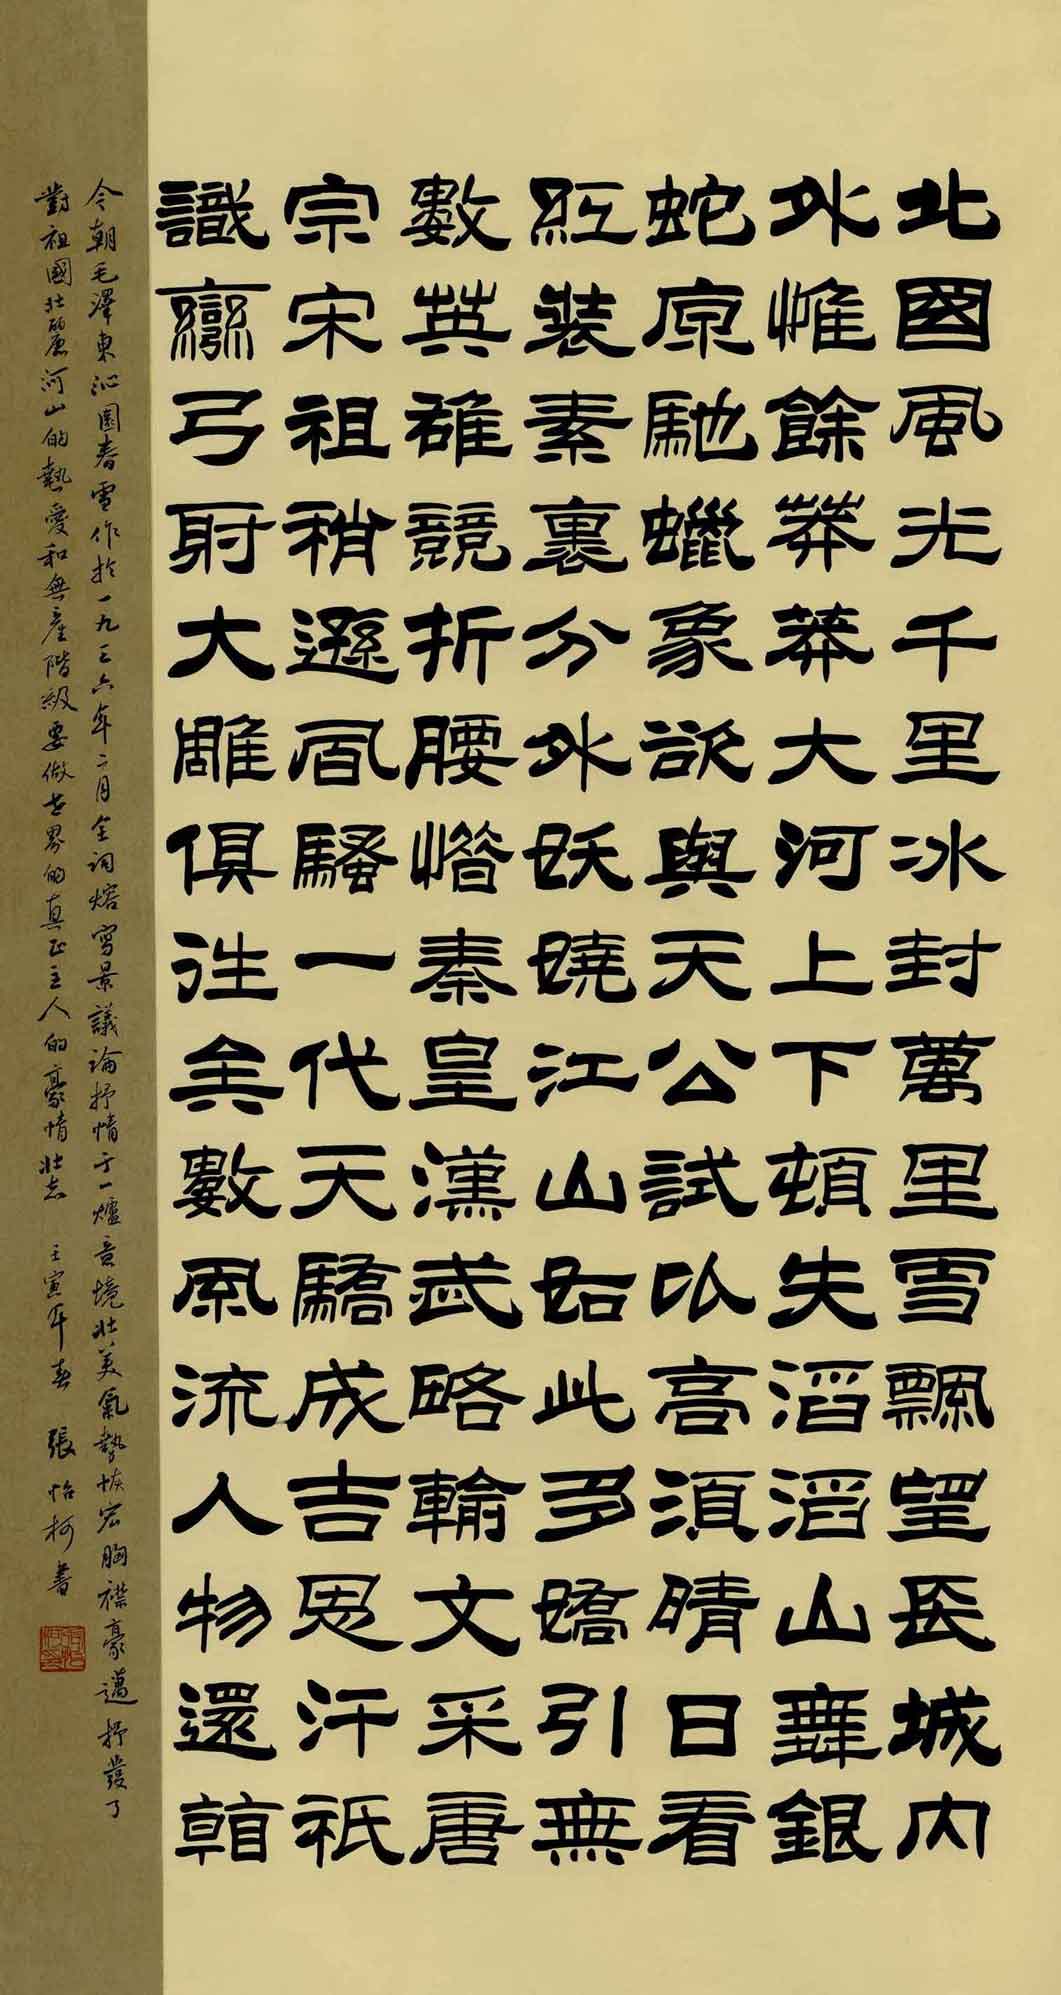 北國風光千里冰封萬里雪飄望長城内
外惟餘莽莽大河上下頓失滔滔山舞銀
蛇原馳蠟象欲與天公試以高須晴日看
紅裝素裹分外妖嬈江山如此多嬌引無
數英雄競折腰惜秦皇漢武略輸文采唐
宗宋祖稍遜風騷一代天驕成吉思汗祇
識彎弓射大雕俱往矣數風流人物還看
今朝毛澤東沁園春雪作於一九三六年二月全詞熔寫景議論抒情于一爐意境壯美氣勢恢宏胸襟豪邁抒發了
對祖國壯麗河山的熱愛和無產階級要做世界的真正主人的豪情壯志 壬寅年春 張怡柯書